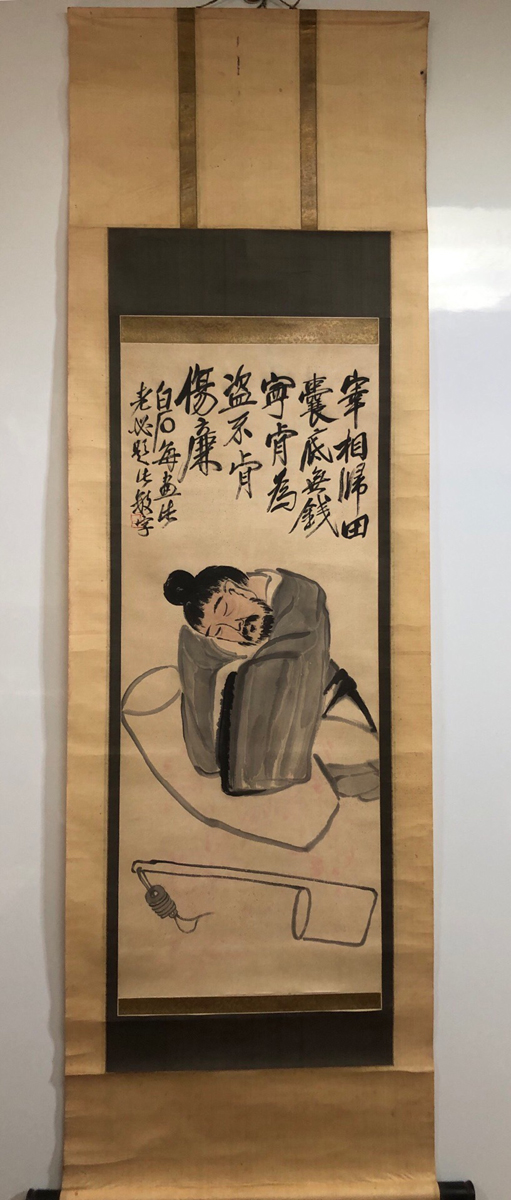 宰相歸田
囊底無錢
寧肯為
盜不肯
傷廉
白石每畫此
老必題此數字